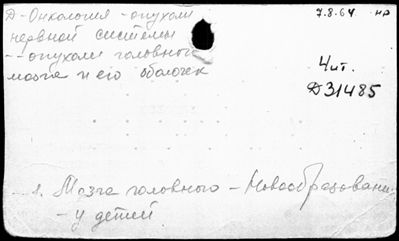 Д - Онкология - опухоли
нервной системы
-- опухоли головного
мозга и его оболочек
7.8.64 нр
Чит.
Д31485
1. Мозга головного - Новообразован
- у детей